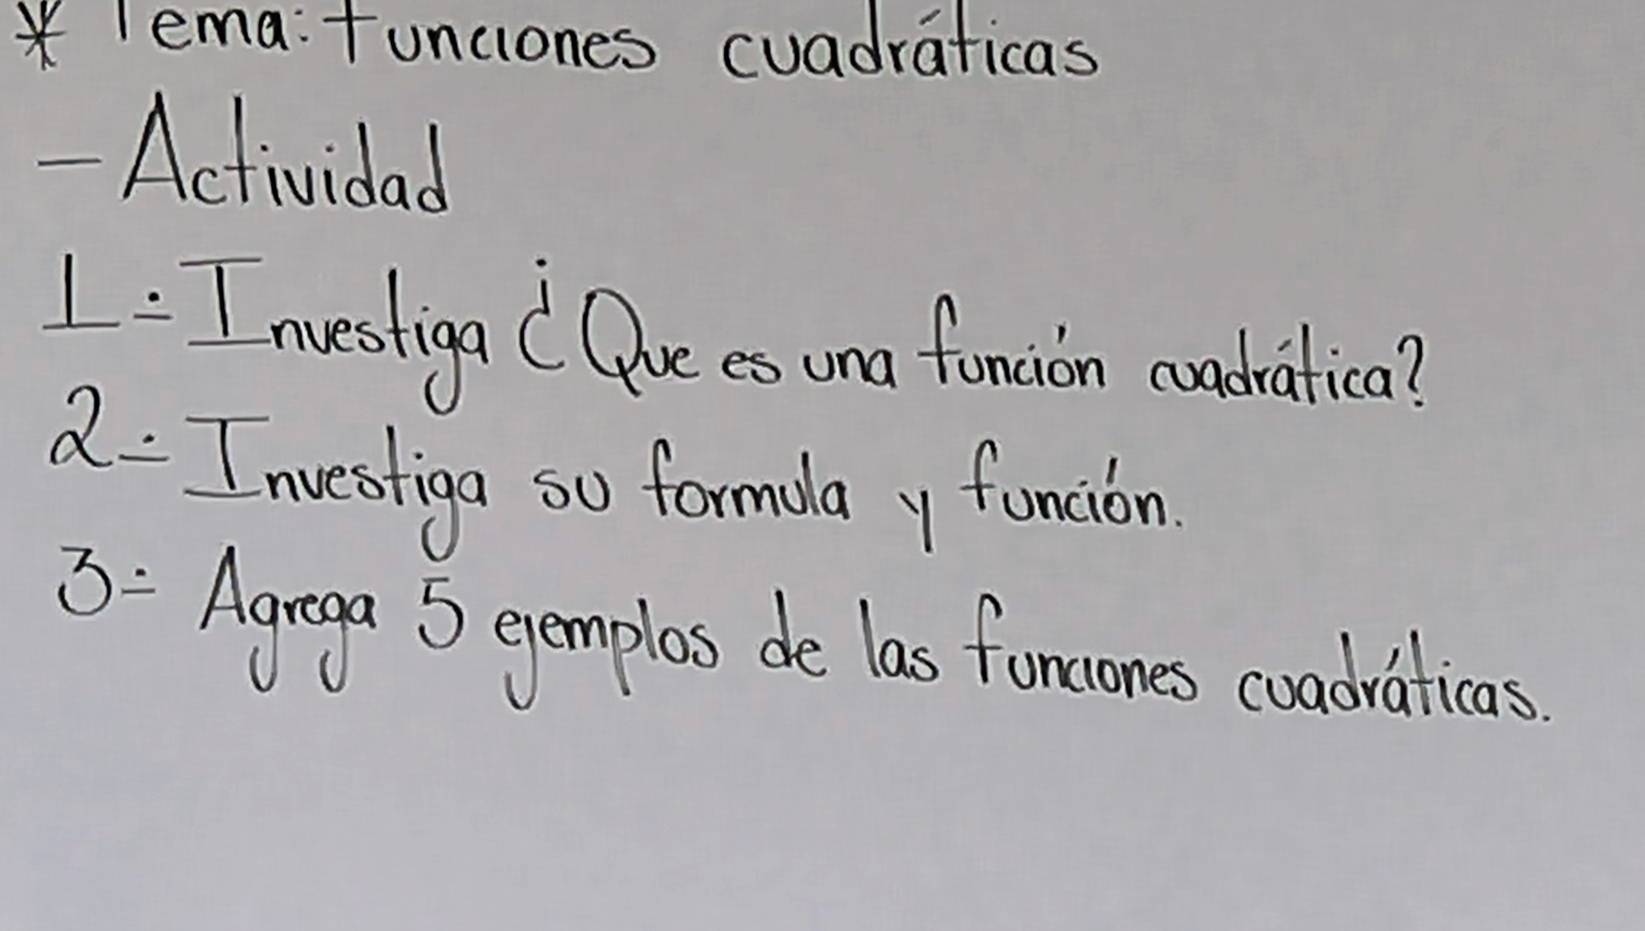 * Tema: Funciones cuadráticas
- Actividad
1.- Investiga ¿Que es una función cuadrática?
2.- Investiga su formula y función.
3.- Agrega 5 ejemplos de las funciones cuadráticas.